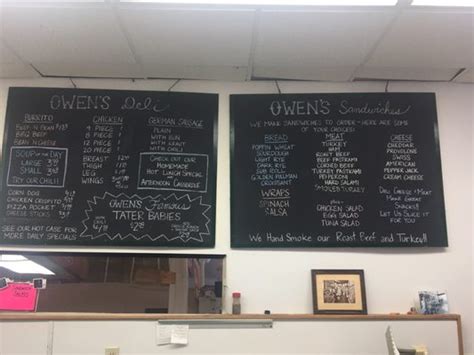 OWEN'S Deli
BURRITO
BEEF N BEAN
BBQ BEEF
BEAN N CHEESE
SOUP of the DAY
LARGE
SMALL
TRY OUR CHILI
CORN DOG
CHICKEN CRISPITO
PIZZA POCKET
CHEESE STICKS
SEE OUR HOT CASE FOR
MORE DAILY SPECIALS
CHICKEN
4 PIECE
8 PIECE
12 PIECE
20 PIECE
BREAST
THIGH
LEG
WINGS
GERMAN SAUSAGE
PLAIN
WITH BUN
WITH KRAUT
WITH CHILI
CHECK OUT OUR
HOMEMADE
HOT LUNCH SPECIAL
AFTERNOON CASSEROLE
OWENS Famous
TATER BABIES
OWEN'S Sandwiches
WE MAKE SANDWICHES TO ORDER - HERE ARE SOME
OF YOUR CHOICES!
BREAD
POPPIN WHEAT
SOURDOUGH
LIGHT RYE
DARK RYE
SUB ROLL
GOLDEN PULLMAN
CROISSANT
WRAPS
SPINACH
SALSA
MEAT
TURKEY
HAM
ROAST BEEF
BEEF PASTRAMI
TURKEY PASTRAMI
CORNED BEEF
HARD SALAMI
SMOKED TURKEY
plus
CHICKEN SALAD
EGG SALAD
TUNA SALAD
CHEESE
CHEDDAR
PROVOLONE
SWISS
AMERICAN
PEPPER JACK
CREAM CHEESE
DELI CHEESE & MEAT
LET US SLICE IT
FOR YOU
WE HAND SMOKE OUR ROAST BEEF AND TURKEY!!